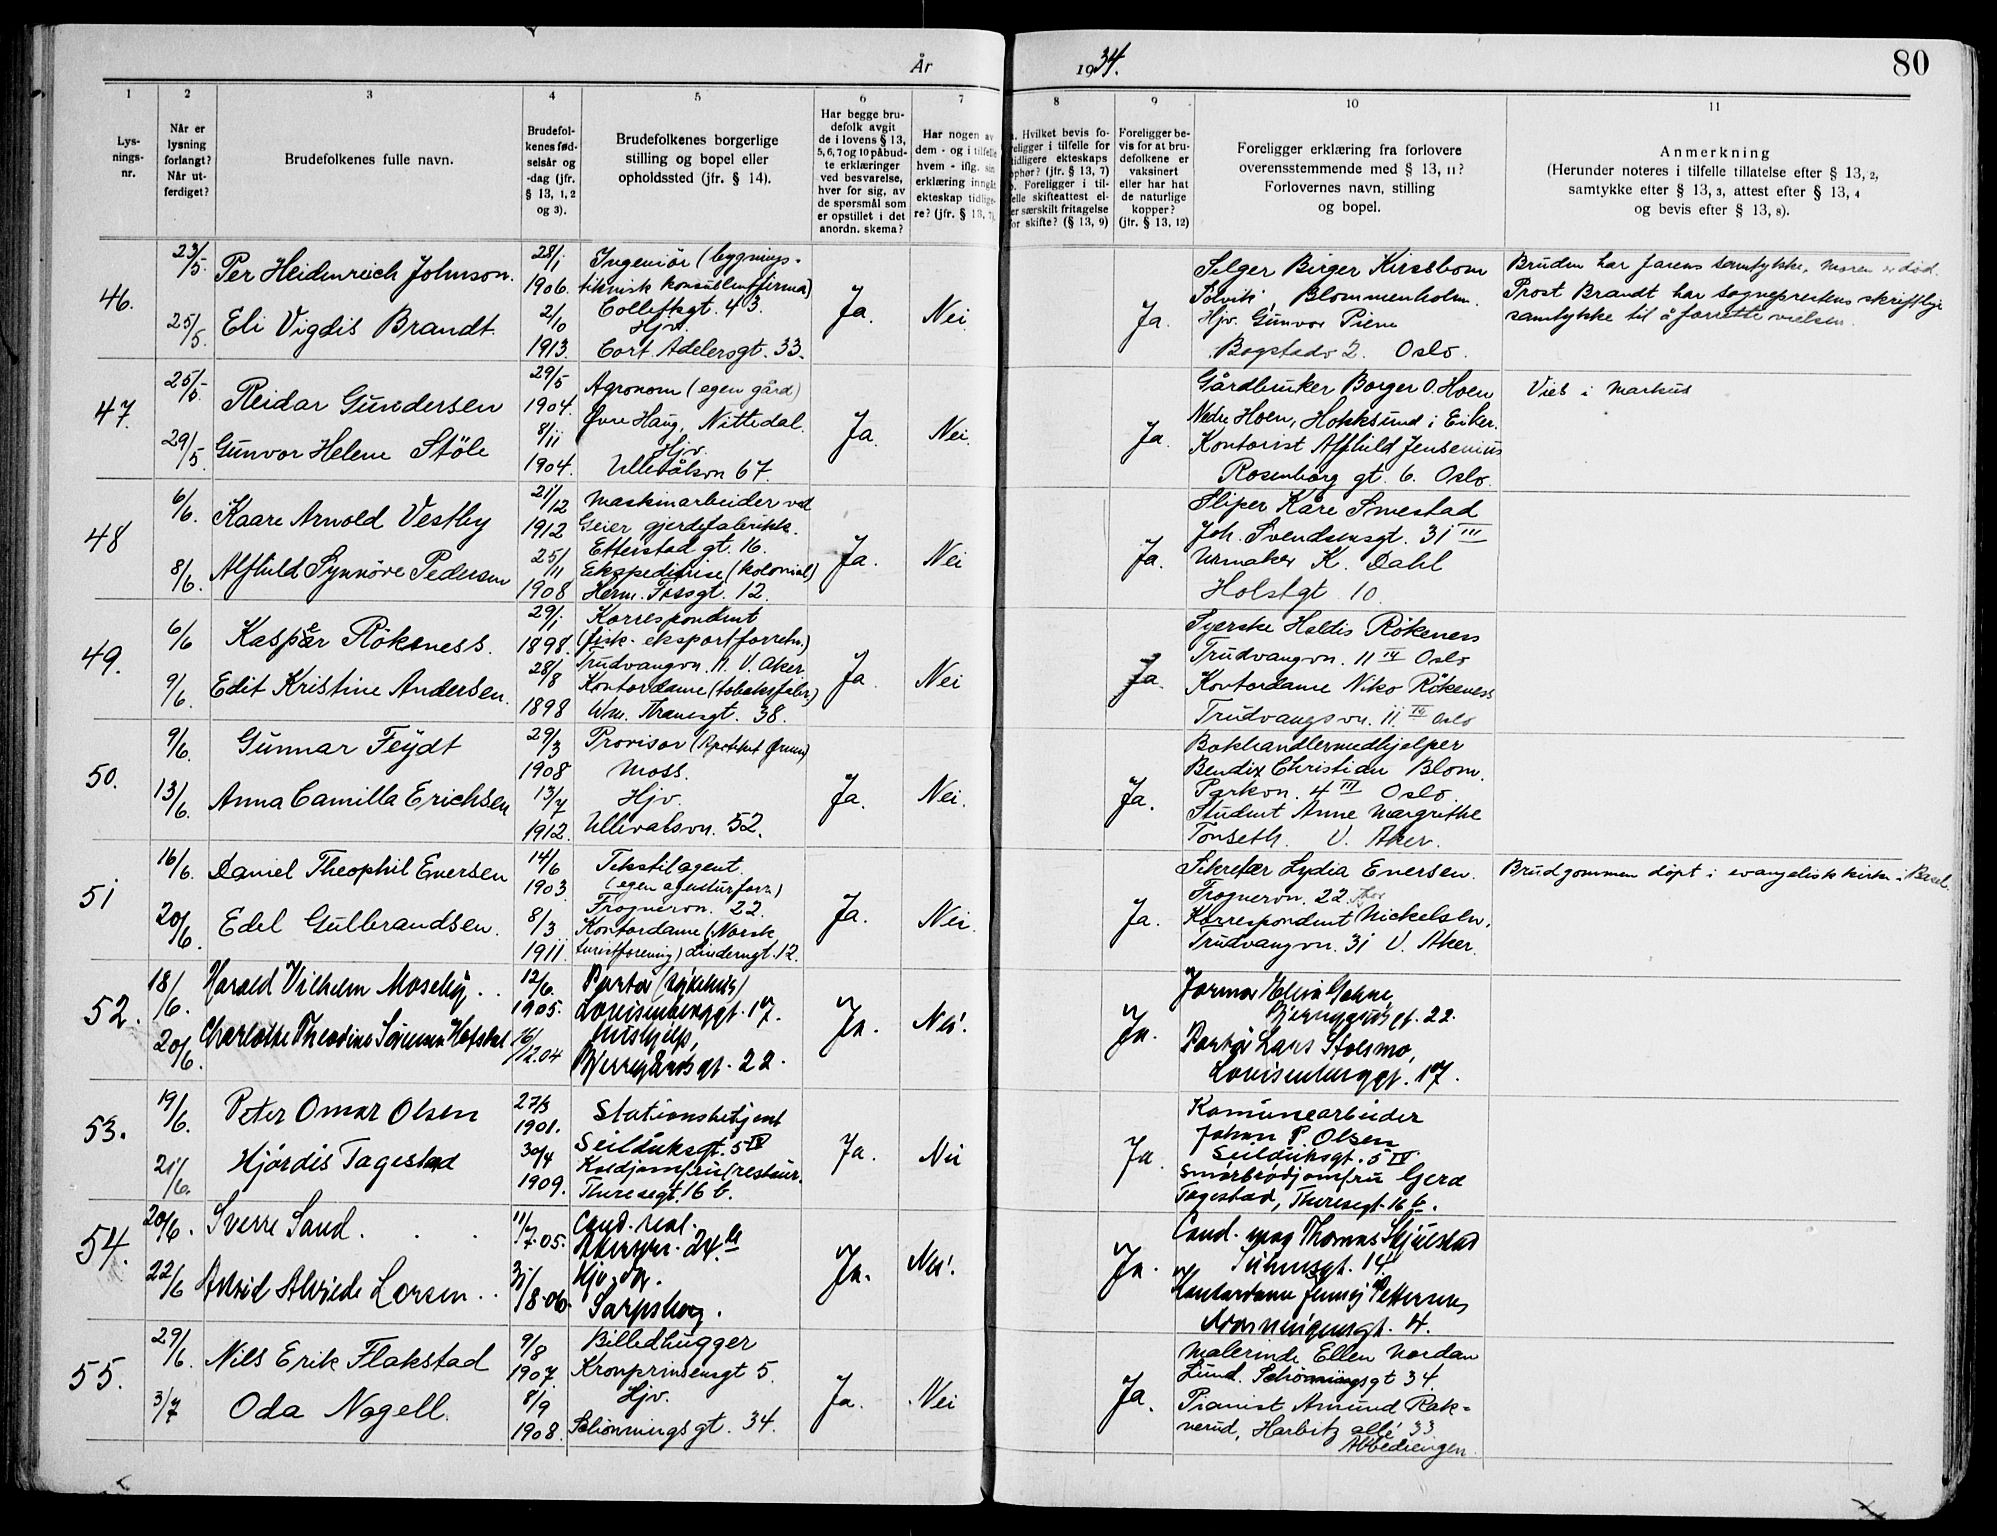 År 1934. 80
1 2 3 4 5 6 7 8 9 10 11
Lys-
nings-
nr.
Når er
lysning
forlangt?
Når ut-
ferdiget?
Brudefolkenes fulle navn.
Brudefol-
kenes fød-
selsår og
-dag (jfr.
§ 13, 1, 2
og 3).
Brudefolkenes borgerlige
stilling og bopel eller
opholdssted (jfr. § 14).
Har begge bru-
defolk avgit
de i lovens § 13,
5, 6, 7 og 10 påbud-
te erklæringer
ved besvarelse,
hver for sig, av
de spørsmål som
er opstillet i det
anordn. skema?
Har nogen av
dem - og i tilfelle
hvem - iflg. sin
erklæring inngått
ekteskap tidlige-
re? (jfr. § 13, 7).
Hvilket bevis fo-
religger i tilfelle for
tidligere ekteskaps
ophør? (jfr. § 13, 7)
b. Foreligger i til-
felle skifteattest el-
ler særskilt fritagelse
for skifte? (§ 13, 9)
Foreligger be-
vis for at bru-
defolkene er
vaksinert
eller har hat
de naturlige
kopper?
(jfr. § 13, 12)
Foreligger erklæring fra forlovere
overensstemmende med § 13, 11?
Forlovernes navn, stilling
og bopel.
Anmerkning
(Herunder noteres i tilfelle tillatelse efter § 13, 2,
samtykke efter § 13, 3, attest efter § 13, 4
og bevis efter § 13, 8).
46.
23/5.
25/5.
Per Heidenreich Johnson.
Eli Vigdis Brandt
28/1
1906.
2/10
1913.
Ingeniör (bygnings-
teknisk konsulentfirma)
Colletsgt. 43.
Hjv.
Cort Adelersgt. 33.
Ja.
Nei
Ja.
Selger Birger Kirsebom
Solvik, Blommenholm.
Hjv. Gunvor Piene
Bogstadv 2. Oslo.
Bruden har farens samtykke, moren er død.
Prost Brandt har sogneprestens skriftlige
samtykke til å forrette vielsen.
47.
25/5.
29/5.
Reidar Gundersen
Gunvor Helene Stöle
29/5
1904.
8/11
1904.
Agronom (egen gård)
Øvre Haug, Nittedal.
Hjv.
Ullevålsvn 67.
Ja.
Nei.
Ja.
Gårdbruker Borger O. Hoen
Nedre Hoen, Hokksund i Eiker.
Kontorist Alfhild Jensenius
Rosenborg gt. 6. Oslo.
Viet i Markus
48
6/6.
8/6.
Kaare Arnold Vestby
Alfhild Synnöve Pedersen
21/12
1912
25/11
1908
Maskinarbeider ved
Geier gjerdefabrikk.
Etterstad gt. 16.
Ekspeditrise (kolonial)
Herm. Fossgt. 12.
Ja.
Nei
Ja.
Sliper Kåre Smestad
Joh. Svendsensgt. 31 III
Urmaker K. Dahl
Holstgt 10.
49.
6/6
9/6.
Kasper Rökeness.
Edit Kristine Andersen.
29/1
1898.
28/8
1898
Korrespondent
(fisk-eksportforretn.)
Trudvangvn. 11. V. Aker.
Kontordame (tobaksfabr.)
Wm. Thranesgt. 38.
Ja.
Nei
Ja.
Syerske Haldis Rökeness
Trudvangvn. 11 IV Oslo
Kontordame Niko Rökeness
Trudvangsvn. 11 IV Oslo
50.
9/6.
13/6.
Gunnar Feydt
Anna Camilla Erichsen
29/3
1908
13/7
1912.
Provisor (Apoteket Ørnen)
Moss.
Hjv.
Ullevalsvn. 52.
Ja.
Nei.
Ja.
Bokhandlermedhjelper
Bendix Christian Blom.
Parkvn. 4 III Oslo
Student Anne Margrethe
Tonseth. V. Aker.
51
16/6.
20/6.
Daniel Theophil Enersen
Edel Gulbrandsen.
14/6
1903.
8/3
1911.
Tekstilagent.
(egen agenturforr.)
Frognervn. 22.
Kontordame (Norsk
turistforening) Lindernsgt. 12.
Ja.
Nei.
Ja.
Sekretær Lydia Enersen.
Frognervn. 22.
Korrespondent Mickelsen,
Trudvangvn. 31 V. Aker.
Brudgommen döpt i evangeliske kirke i Basel.
52.
18/6.
20/6.
Harald Vilhelm Moseby..
Charlotte Theodine Hofstad
12/6.
1905.
16/12.04
Portör (sykehus)
Lovisenberggt. 17.
hushjelp,
Bjerregårdsgt. 22.
Ja.
Nei.
Ja.
Bjerregårdsgt. 22.
Portör Lars Stolsmo,
Lovisenberggt. 17.
53.
19/6.
21/6.
Peter Omar Olsen
Hjördis Tagestad
27/3
1901.
30/4
1909.
Stationsbetjent
Seilduksgt. 5 IV
Koldjomfru (restaur.
Theresegt. 16 b.
Ja.
Nei
Ja.
Komunearbeider
Johan P. Olsen
Seilduksgt. 5 IV
Smörbrödjomfru Gerd
Tagestad, Theresegt. 16 b.
54.
20/6.
22/6
Sverre Sand. . .
Astrid Alvilde Larsen..
11/7.05.
31/8.06.
Cand. real.
Hjv.
Sarpsborg.
Ja.
Nei.
Ja.
Cand. mag Thomas Skjelstad
gt. 14.
Kontordame Jenny Pettersen
gt. 4.
55.
29/6.
3/7
Nils Erik Flakstad
Oda Nagell.
9/8
1907.
8/9
1908.
Billedhugger
Kronprinsensgt 5.
Hjv.
Schönningsgt. 34.
Ja.
Nei
Ja.
Malerinde Ellen Nordan
Lund. Schönningsgt 34.
Pianist Amund Rak-
nerud, Harbitz allé 33
Abbediengen.